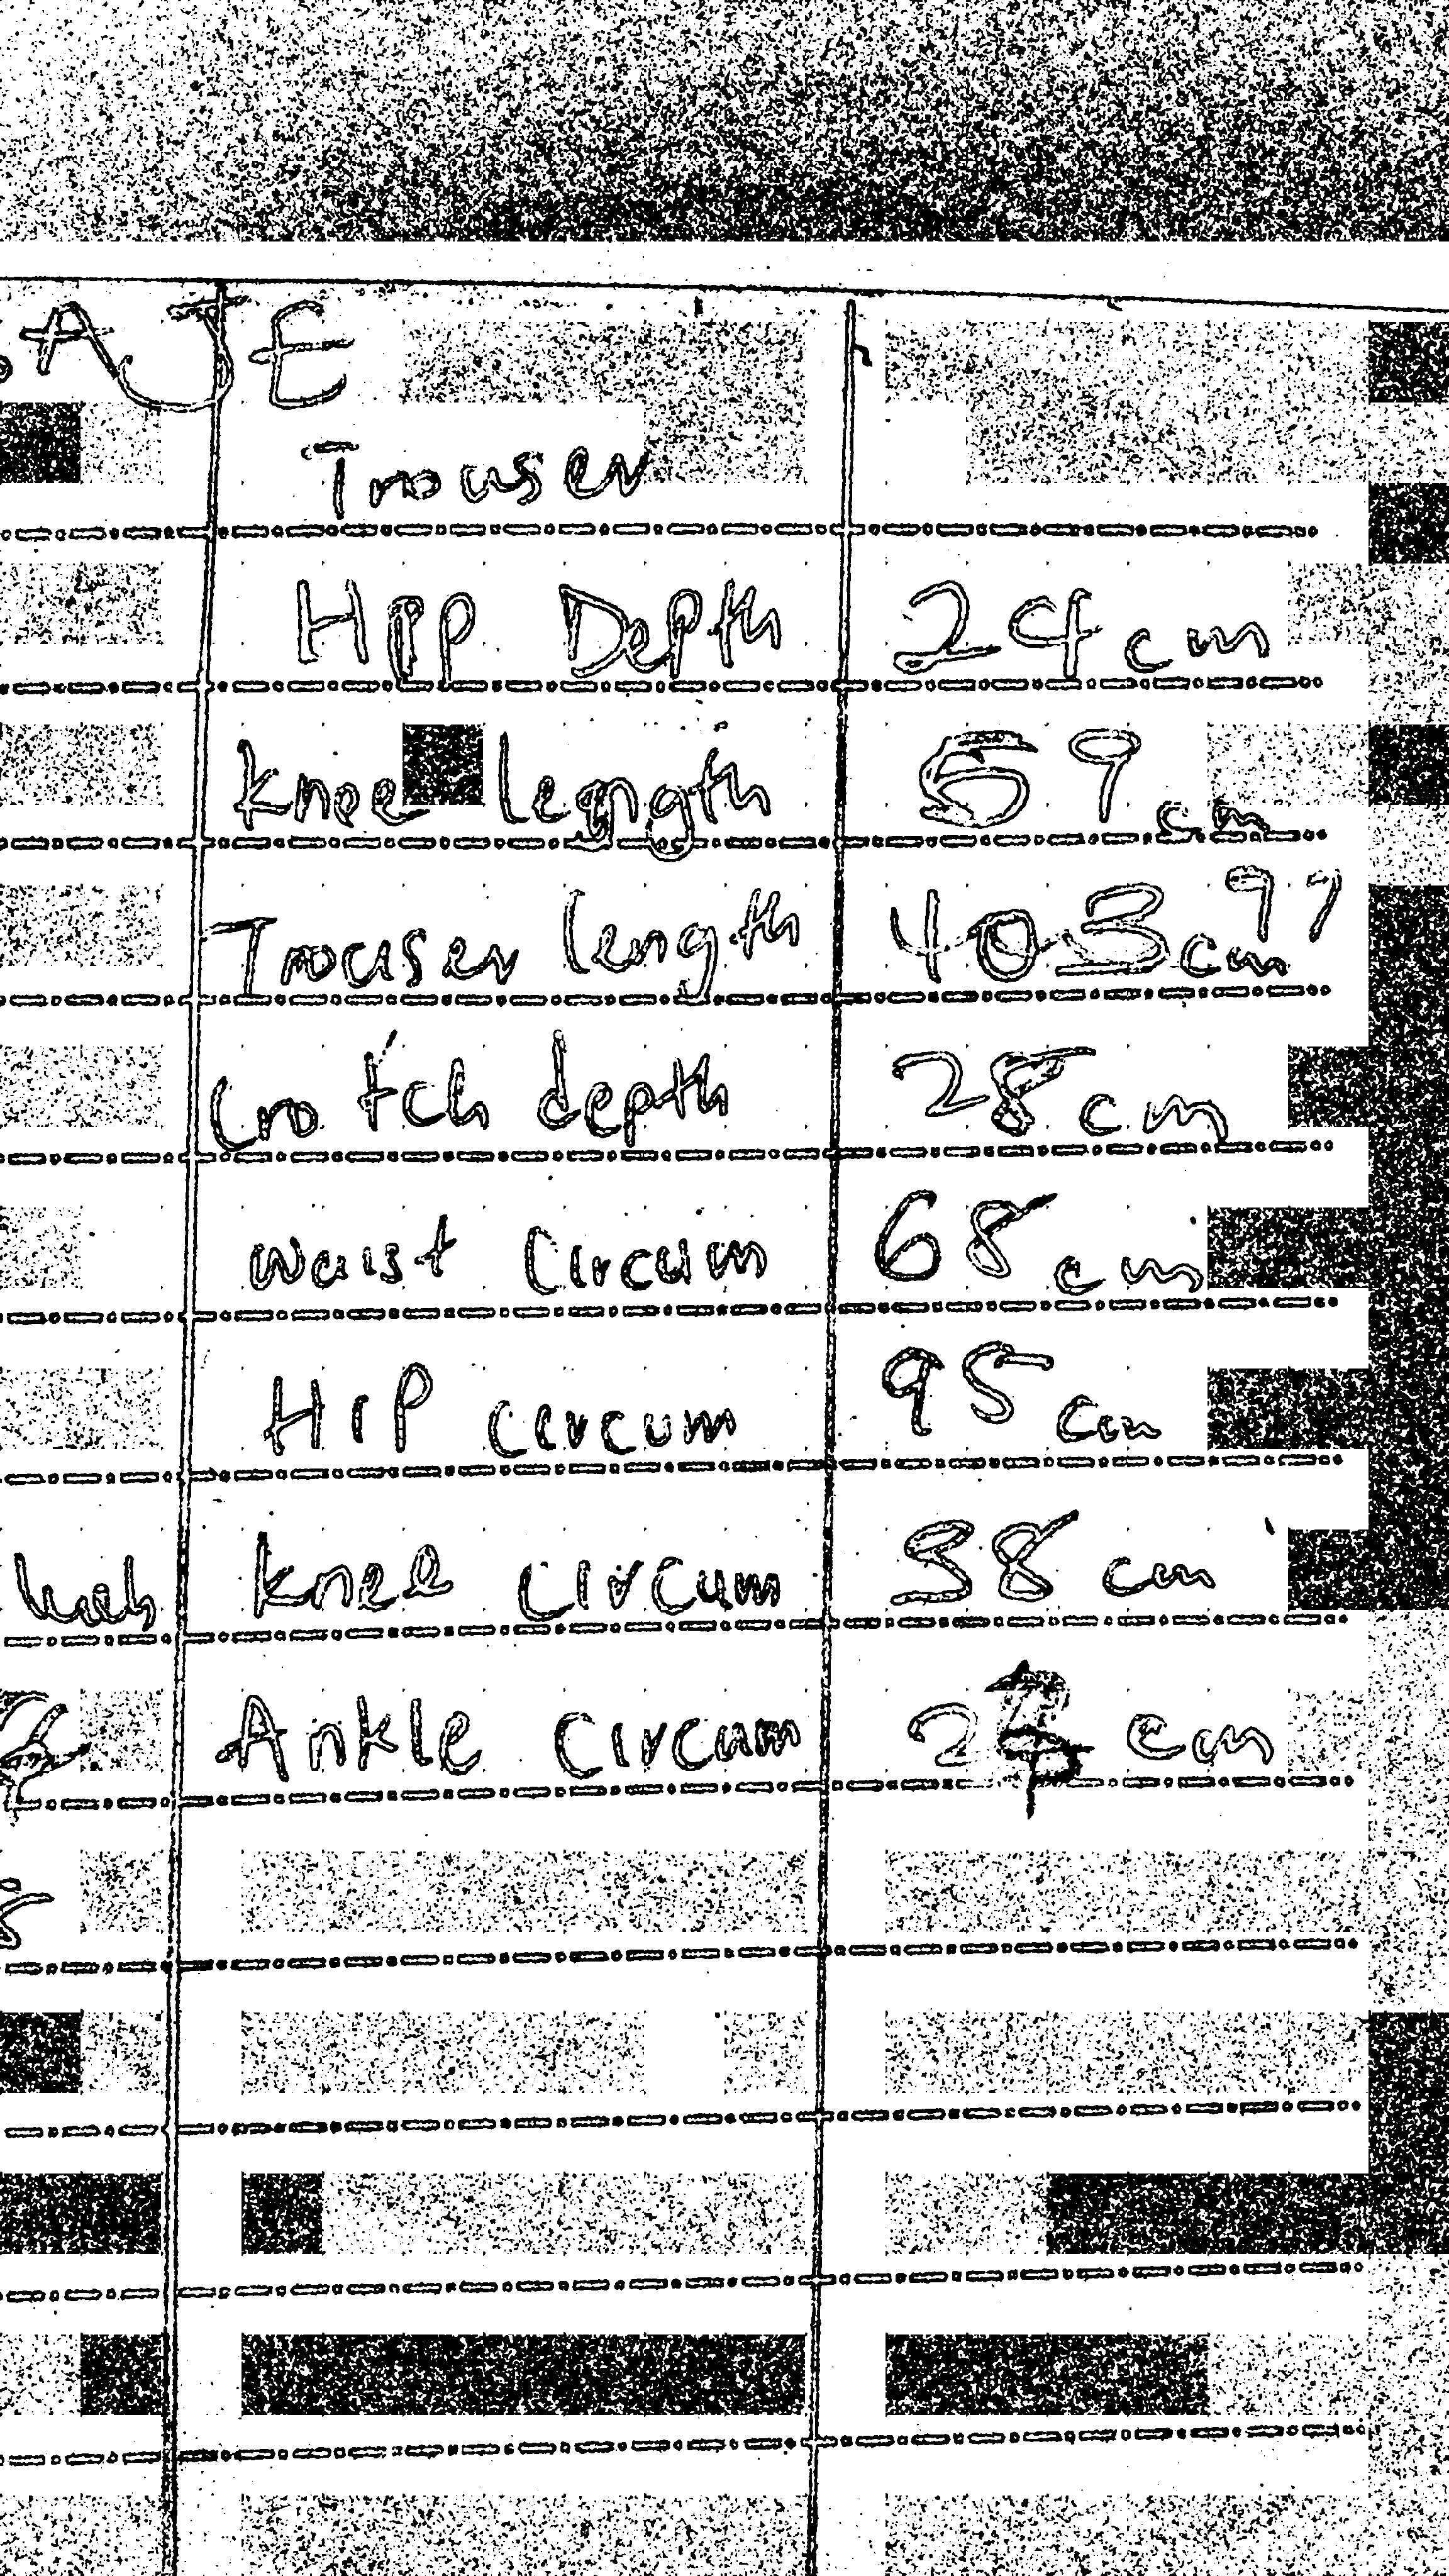 AJE
Trouser
Hip Depth 24 cm
Knee length 59 cm
Trouser length 103 cm 99
Crotch depth 28 cm
waist Circum 68 cm
HIP circum 95 cm
knee circum 38 cm
Ankle circum cm